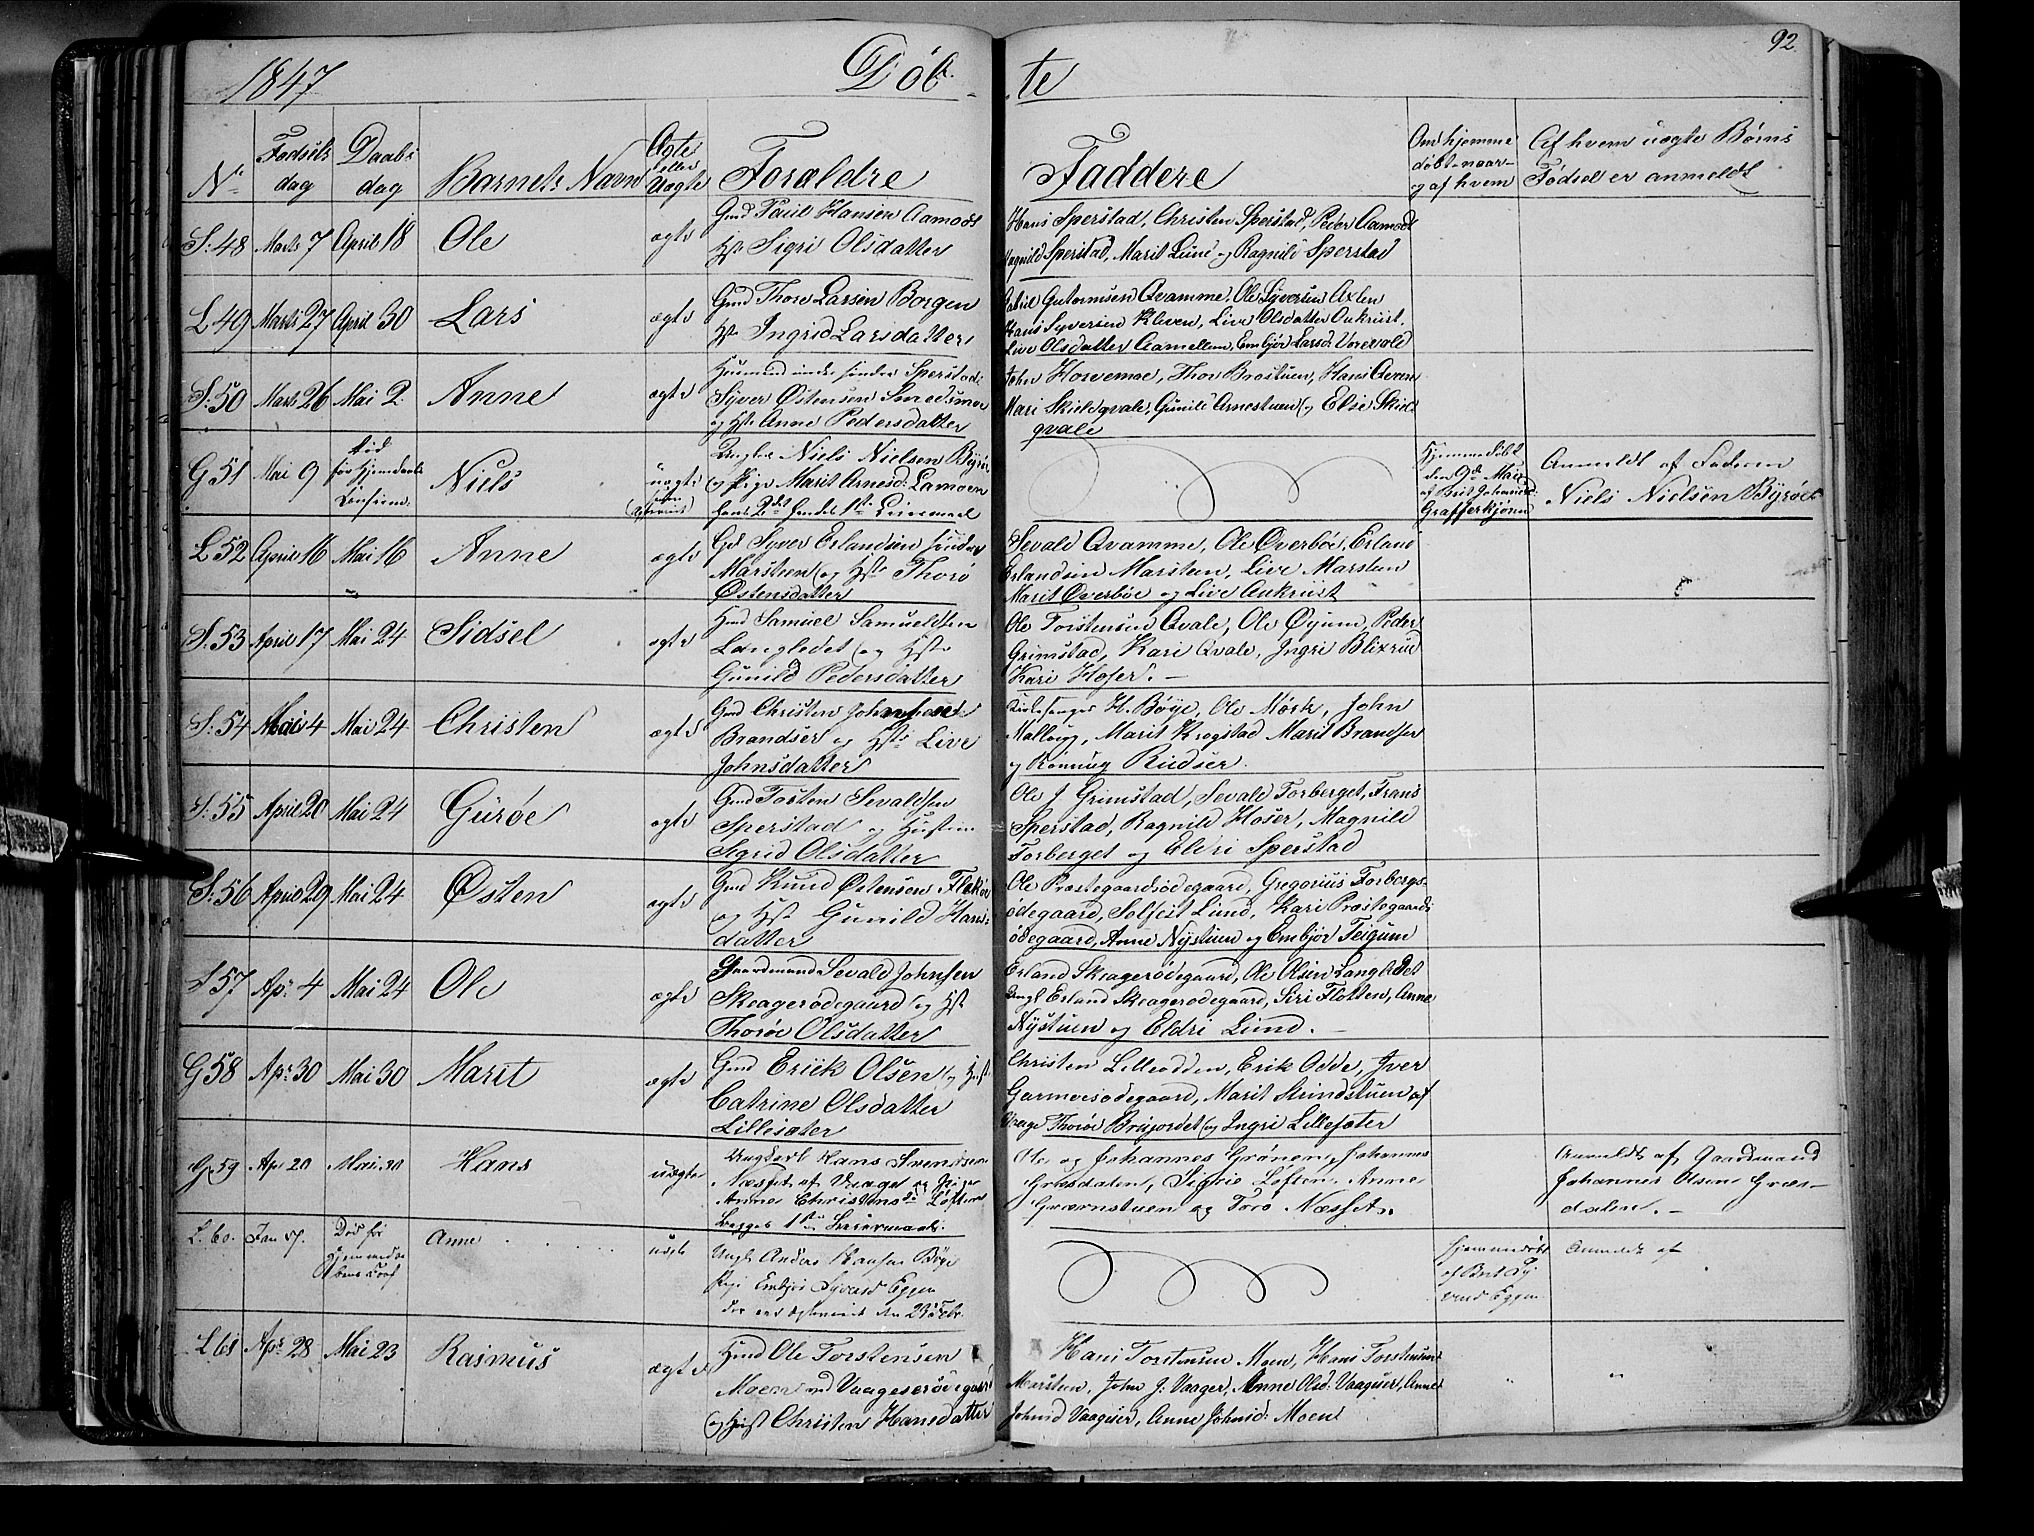 1847 Døb- te 92.
No Fødsels dag Daabs dag Barnets Navn Ægte eller Uægte Forældre Faddere Om hjemme døbt naar og af hvem Af hvem uægte Børns Fødsel er anmeldt
S. 48 Marts 7 April 18 Ole ægte
Gmd Paul Hansen Aamodt
Hst. Sigri Olsdatter
Hans Sperstad, Christen Sperstad, Peder Aamodt
Sperstad, Marit Lund og Ragnild Sperstad
L 49 Marts 27 April 30 Lars ægte
Gmd Thore Larsen Borgen
Hst. Ingrid Larsdatter
Gutormsen Qvamme, Ole Syversen Axlen
Hans Syversen Kleven, Live Olsdatter Aukrust,
Live Olsdatter Aamellem, Embjør Larsd. Vorevald
S. 50 Marts 26 Mai 2 Anne ægte
Huusmand under Sperstad
Syver Østensen
og Hst. Anne Pedersdatter
John Hovemoe, Thor Brostuen, Hans
Mari Skieldqvale, Gunild Arnestuen og Else Skield
qvale
G 51 Mai 9 død før Hjemdaabs Niels uægte
Ungkar Niels Nielsen Byrøe
og Pige Marit Arnesd. Lamoen
hans 2det hendes 1ste Leiermaal
Hjemmedøbt
den 9de Mai
Grafferkjønn
Anmeldt af Faderen
Niels Nielsen Byrøe
L 52 April 16 Mai 16 Anne ægte
Syver Erlandsen
Marsteen og Hst. Thorø
Østensdatter
Sevald Qvamme, Ole Øverbøe, Erland
Erlandsen Marsteen, Live Marsteen
Marit Øverbøe og Live Aukrust
S. 53 April 17 Mai 24 Sidsel ægte
Samuel Samuelsen
Langledet og Hst.
Gunild Pedersdatter
Ole Torstensen Qvale, Ole Øyum, Peder
Grimstad, Kari Qvale, Ingri Blixrud
Kari Hoser. -
S. 54 Mai 4 Mai 24 Christen ægte
Gmd Christen Johnsen
Brandser og Hst. Live
Johnsdatter
Kirkesanger H. Bøye, Ole Mork, John
Marit Krogstad Marit Brandser
og Rønnug Rudser.
S. 55 April 20 Mai 24 Guroe ægte
Gmd Tosten Sevaldsen
Sperstad og Hustru
Sigrid Olsdatter
Ole J. Grimstad, Sevald Forberget, Frans
Sperstad, Ragnild Hoser, Magnild
Forberget og Eldri Sperstad
S. 56 April 29 Mai 24 Østen ægte
Gmd Knud Østensen
og Hst. Gunild Hans-
datter
Ole Præstegaardsødegaard, Gregorius Forbergs-
ødegaard, Solfeit Lund, Kari Præstegaards-
ødegaard, Anne Nystuen og Embjør Teigum
S 57 Apr. 4 Mai 24 Ole ægte
Gaardmand Sevald Johnsen
Skeagerødegaard og Hst.
Thorøe Olsdatter
Erland Skeagerødegaard, Ole Olsen Langledet
Erland Skeagerødegaard, Siri Flotten, Anne
Nystuen og Eldri Lund. -
G 58 Apr. 30 Mai 30 Marit ægte
Gmd Erick Olsen og
Catrine Olsdatter
Lillesæter
Christen Lilleodden, Erik Odde, Iver
Garmosødegaard, Marit Strindstuen af
Vaage Thorøe Brujordet og Ingri Lillesæter
G. 59 Apr 20 Mai 30 Hans uægte
Ungkarl Hans
Næsset af Vaage og Pige
Anne Christensd. Løften
begges 1ste Leiermaal.
Ole og Johannes Grønen, Johannes
Græsdalen, Sigrie Løften Anne
og Toro Næsset.
Anmeldt af Gaardmand
Johannes Olsen Græs-
dalen. -
L. 60. Jan 17. Død før Anne uægte
Ungk Anders Hansen Bøye
Pige Embjør Syversd Eggen
den 23 Febr.
hjemmedøbt
af
Eggen
Anmeldt af
L 61 Apr. 28 Mai 23 Rasmus ægte
Hmd Ole Torstensen
Moen
og Hust Christen Hansdatter
Hans Torstensen Moen, Hans Torstensen
Marsteen, John J. Vaager, Anne Olsd. Vaaguer, Anne
Johnsd Vaaguer, Anne Johnsd. Moen